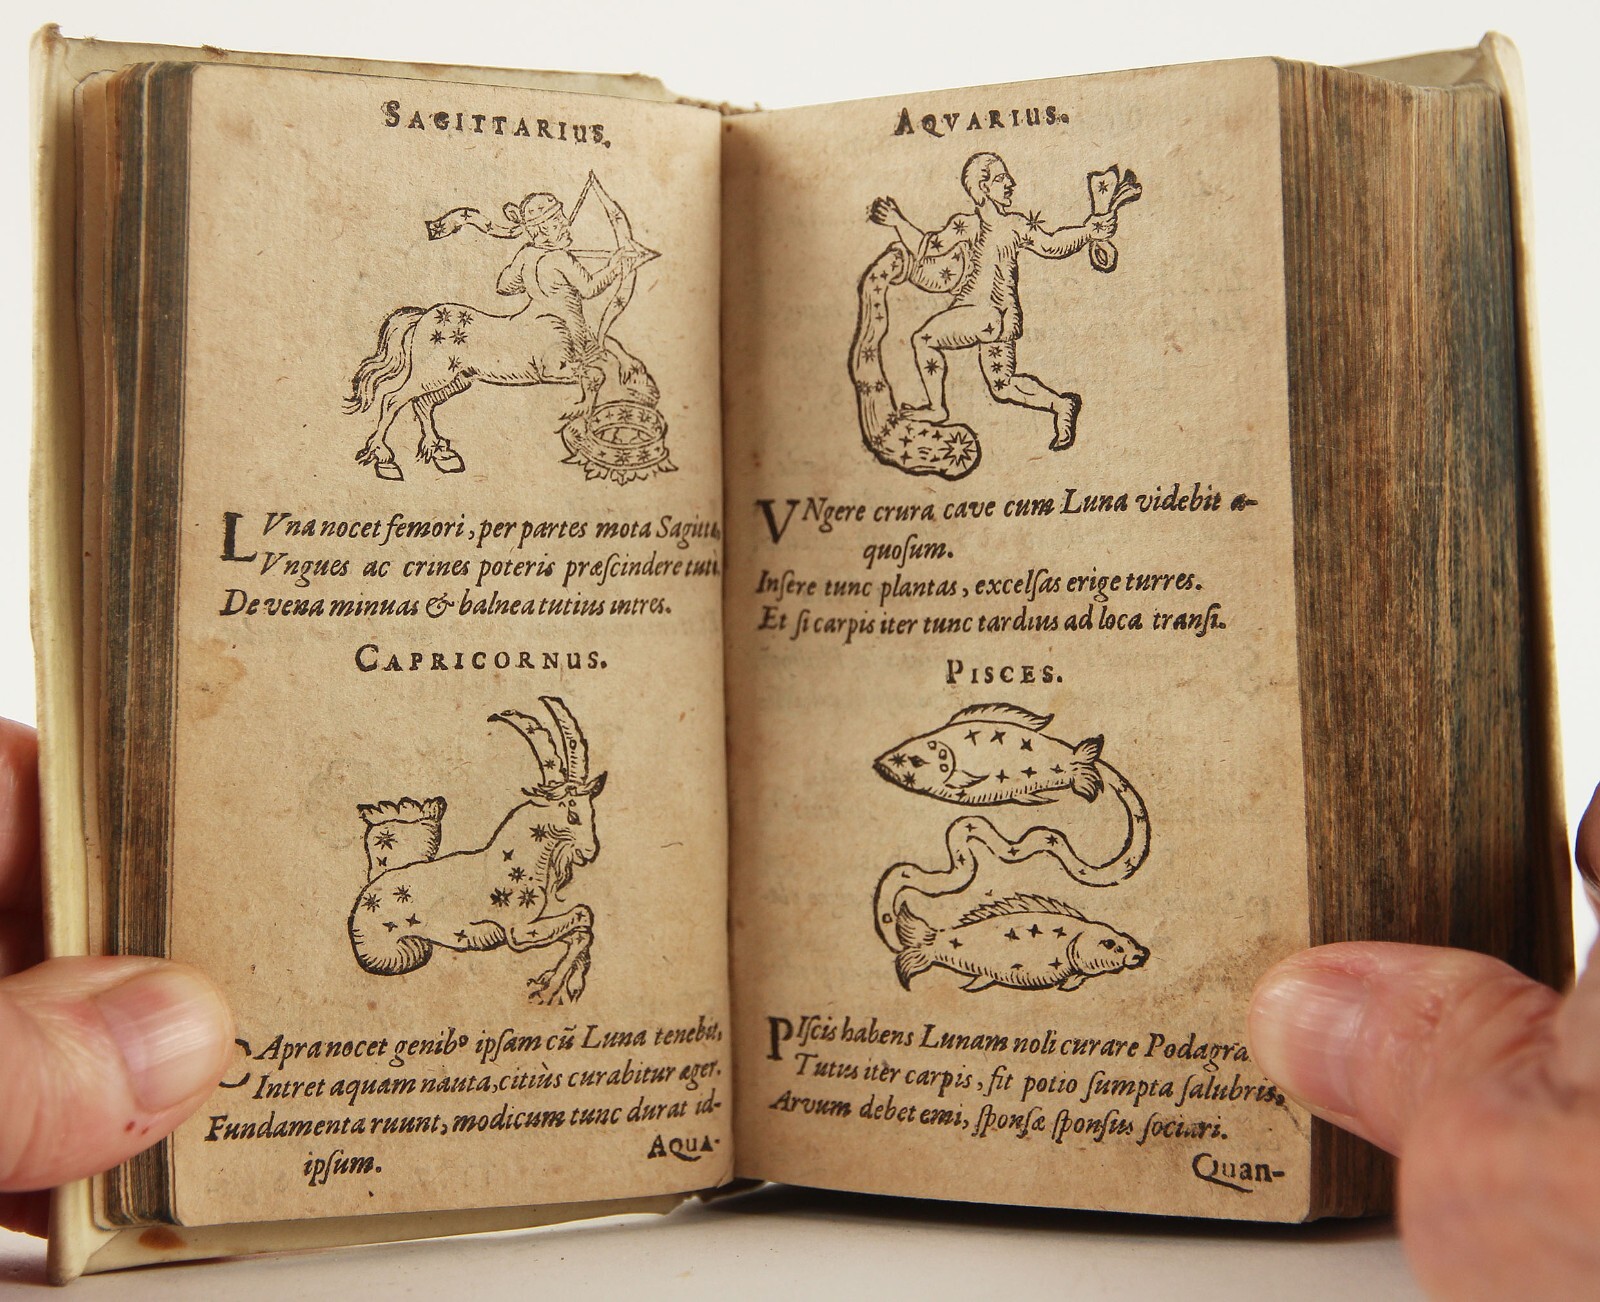 SAGITTARIUS.
LVna nocet femori, per partes mota
Vngues ac crines poteris præſcindere
De vena minuas & balnea tutius intres.
CAPRICORNUS.
Apra nocet genibꝰ ipſam cū Luna tenebit,
Intret aquam nauta, citiùs curabitur æger.
Fundamenta ruunt, modicum tunc durat id-
ipſum.
AQUA-
AQVARIUS.
VNgere crura cave cum Luna videbit a-
quoſum.
Inſere tunc plantas, excelſas erige turres.
Et ſi carpis iter tunc tardius ad loca tranſi.
PISCES.
PIſcis habens Lunam noli curare Podagra
Tutus iter carpis, fit potio ſumpta ſalubris,
Arvum debet emi, ſponſæ ſponſus ſociari.
Quan-